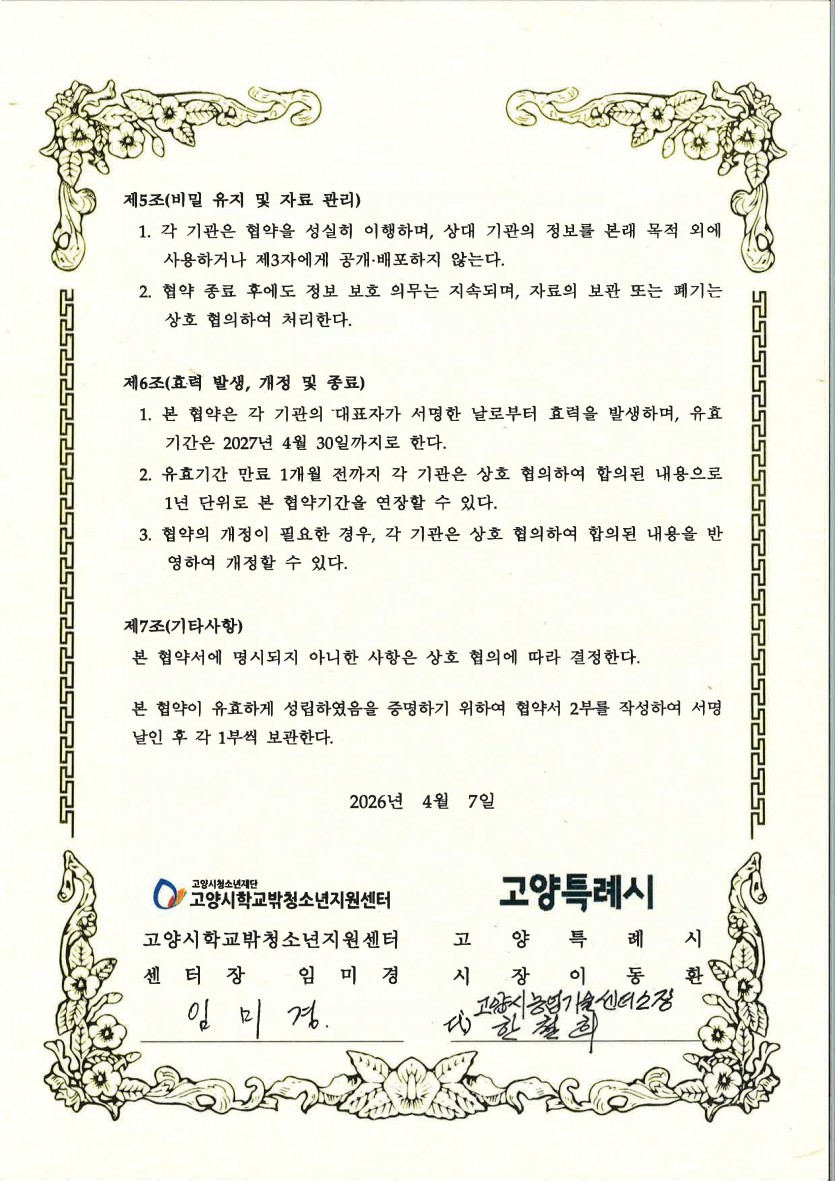 제5조(비밀 유지 및 자료 관리)
1. 각 기관은 협약을 성실히 이행하며, 상대 기관의 정보를 본래 목적 외에
사용하거나 제3자에게 공개·배포하지 않는다.
2. 협약 종료 후에도 정보 보호 의무는 지속되며, 자료의 보관 또는 폐기는
상호 협의하여 처리한다.
제6조(효력 발생, 개정 및 종료)
1. 본 협약은 각 기관의 대표자가 서명한 날로부터 효력을 발생하며, 유효
기간은 2027년 4월 30일까지로 한다.
2. 유효기간 만료 1개월 전까지 각 기관은 상호 협의하여 합의된 내용으로
1년 단위로 본 협약기간을 연장할 수 있다.
3. 협약의 개정이 필요한 경우, 각 기관은 상호 협의하여 합의된 내용을 반
영하여 개정할 수 있다.
제7조(기타사항)
본 협약서에 명시되지 아니한 사항은 상호 협의에 따라 결정한다.
본 협약이 유효하게 성립하였음을 증명하기 위하여 협약서 2부를 작성하여 서명
날인 후 각 1부씩 보관한다.
2026년 4월 7일
고양시청소년재단
고양시학교밖청소년지원센터
고양시학교밖청소년지원센터
센 터 장 임 미 경
임 미 경.
고양특례시
고 양 특 례 시
시 장 이 동 환
고양시농업기술센터소장
代) 한 철 희